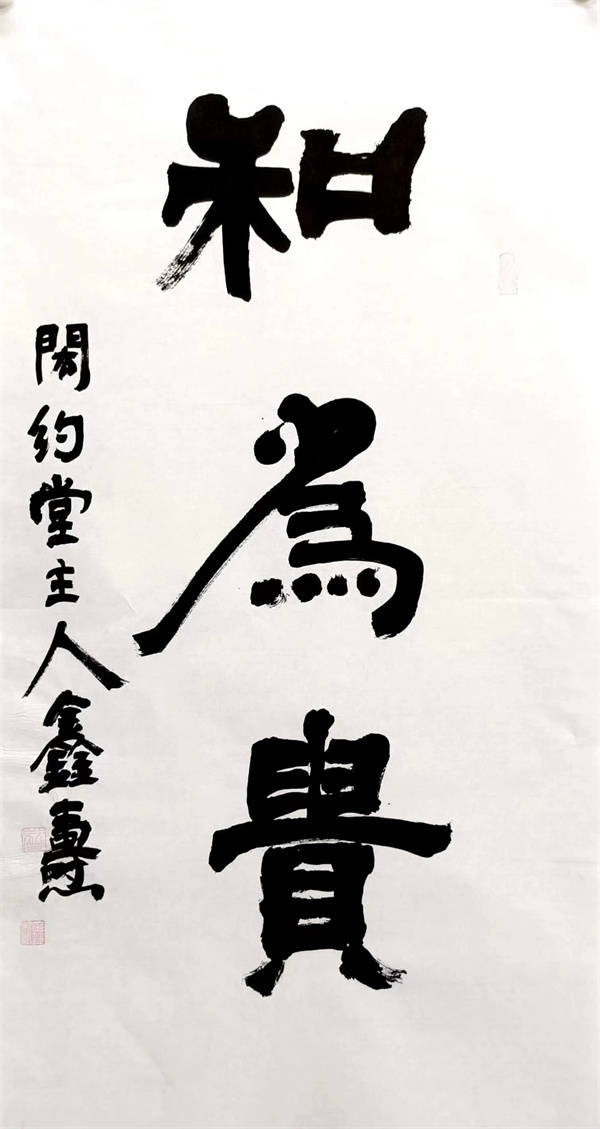 和為貴
閑约堂主人鑫